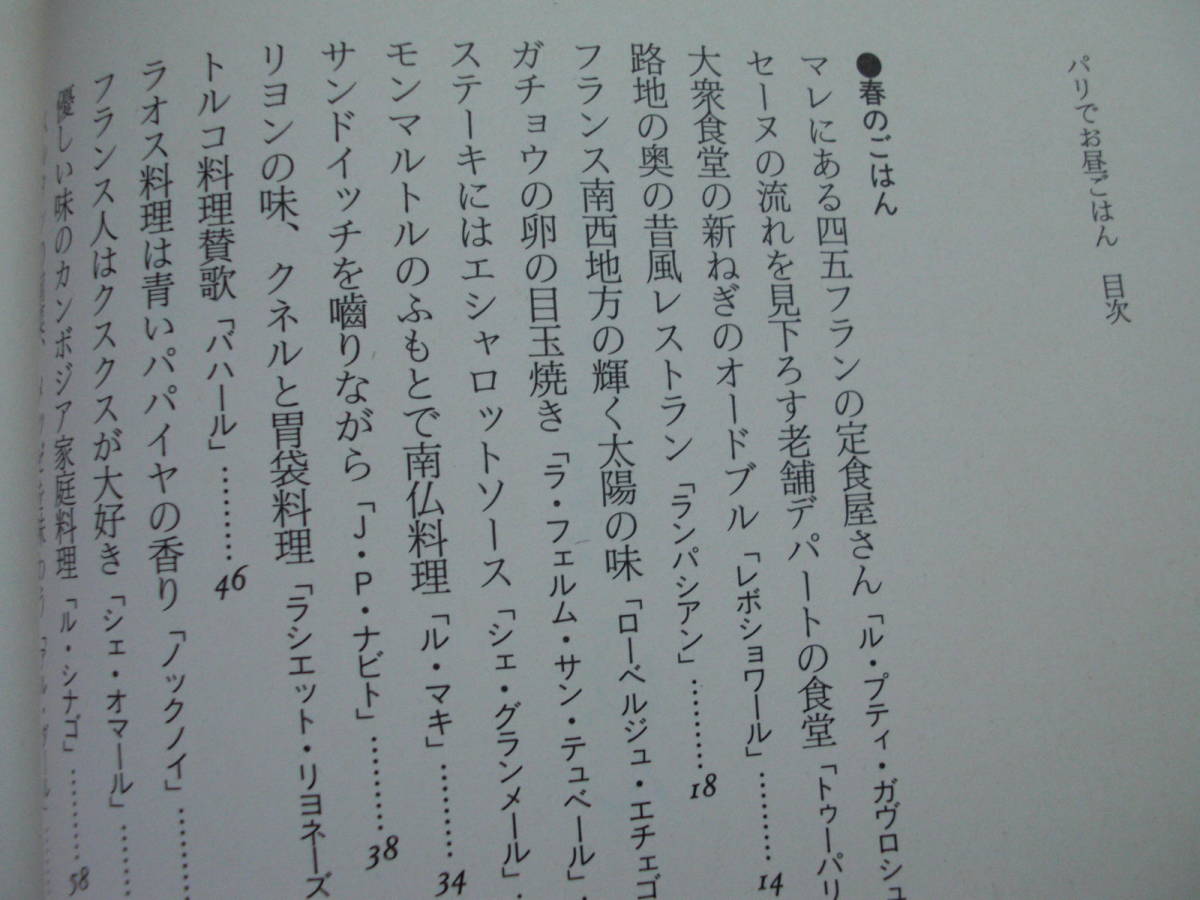 パリでお昼ごはん　目次
●春のごはん
マレにある四五フランの定食屋さん「ル・プティ・ガヴロシュ
セーヌの流れを見下ろす老舗デパートの食堂「トゥーパリ
大衆食堂の新ねぎのオードブル「レボショワール」…………14
路地の奥の昔風レストラン「ランパシアン」…………18
フランス南西地方の輝く太陽の味「ローベルジュ・エチェゴ
ガチョウの卵の目玉焼き「ラ・フェルム・サン・テュベール」
ステーキにはエシャロットソース「シェ・グランメール」
モンマルトルのふもとで南仏料理「ル・マキ」…………34
サンドイッチを嚙りながら「J・P・ナビト」…………38
リヨンの味、クネルと胃袋料理「ラシエット・リヨネーズ
トルコ料理賛歌「バハール」…………46
ラオス料理は青いパパイヤの香り「ノックノイ」…………
フランス人はクスクスが大好き「シェ・オマール」………
優しい味のカンボジア家庭料理「ル・シナゴ」…………58